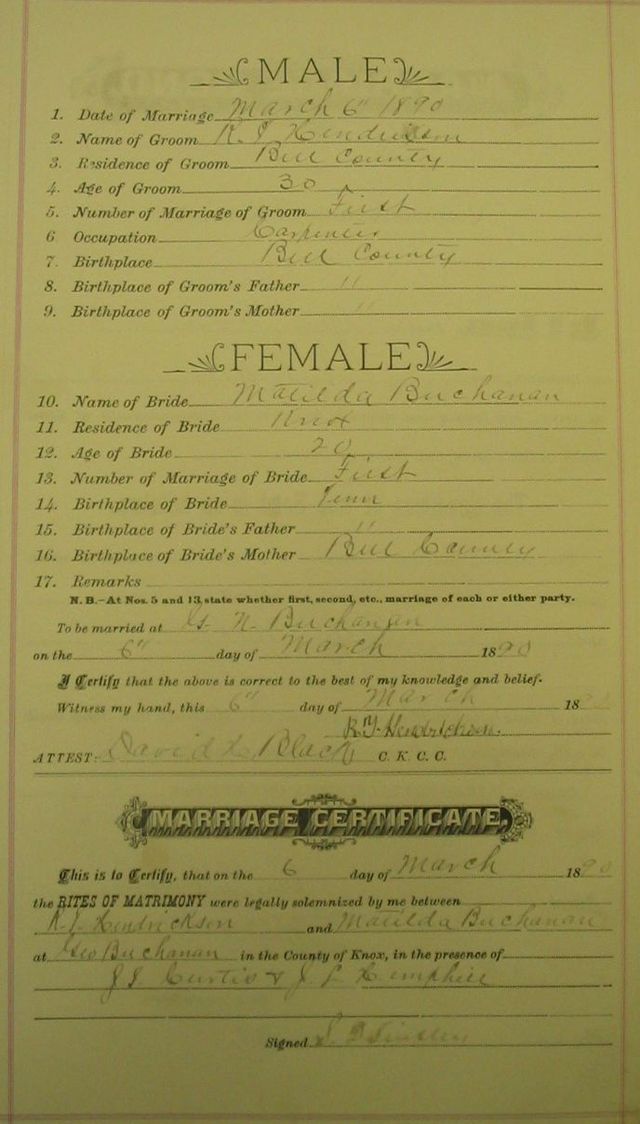 MALE
1. Date of Marriage March 6" 1890
2. Name of Groom R. J Hendrickson
3. Residence of Groom Bell County
4. Age of Groom 30
5. Number of Marriage of Groom First
6 Occupation Carpenter
7. Birthplace Bell County
8. Birthplace of Groom's Father "
9. Birthplace of Groom's Mother "
FEMALE
10. Name of Bride Matilda Buchanan
11. Residence of Bride Knox
12. Age of Bride 20
13. Number of Marriage of Bride First
14. Birthplace of Bride Tenn
15. Birthplace of Bride's Father "
16. Birthplace of Bride's Mother Bell County
17. Remarks
N. B.—At Nos. 5 and 13, state whether first, second, etc., marriage of each or either party.
To be married at G. N. Buchanan
on the 6" day of March 1890
I Certify that the above is correct to the best of my knowledge and belief.
Witness my hand, this 6" day of March 1890
R. J. Hendrickson.
ATTEST: David Black C. K. C. C.
MARRIAGE CERTIFICATE.
This is to Certify, that on the 6 day of March 1890
the RITES OF MATRIMONY were legally solemnized by me between
R. J. Hendrickson and Matilda Buchanan
at Geo Buchanan in the County of Knox, in the presence of
J. J. Curtis & J. L Hemphill
Signed